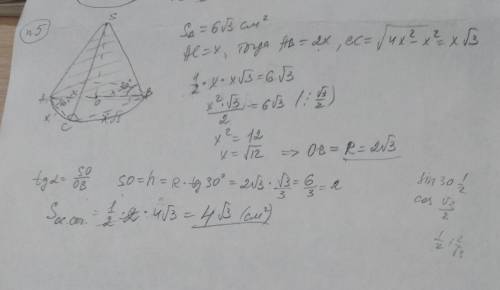 №5
S
A
B
C
O
x
x√3
30°
S△ = 6√3 см²
AC = x, тогда AB = 2x, BC = √4x² - x² = x√3
1/2 · x · x√3 = 6√3
x² · √3 / 2 = 6√3 (: √3/2)
x² = 12
x = √12 => OB = R = 2√3
tg α = SO/OB SO = h = R · tg 30° = 2√3 · √3/3 = 6/3 = 2
S ос.сеч. = 1/2 · 2 · 4√3 = 4√3 (см²)
sin 30 1/2
cos √3/2
1/2 : 2/√3